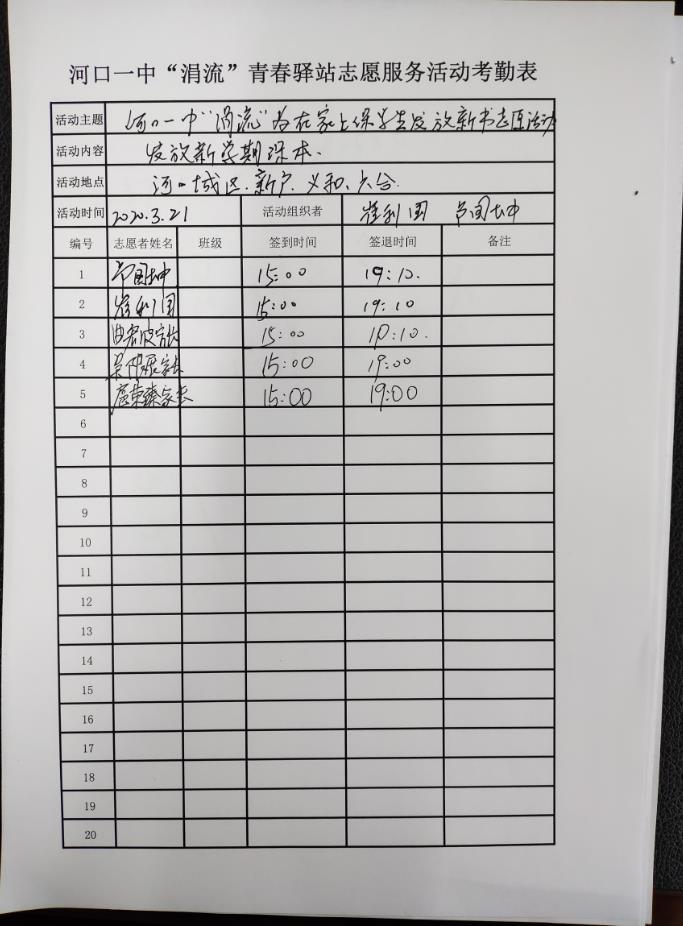 河口一中“涓流”青春驿站志愿服务活动考勤表
活动主题 河口一中“涓流”为在家上保学生发放新书志愿活动
活动内容 发放新学期课本.
活动地点 河口城区.新户.义和.六合.
活动时间 2020.3.21 活动组织者 崔利国
编号 志愿者姓名 班级 签到时间 签退时间 备注
1 15:00 19:10.
2 崔利国 15:00 19:10
3 家长 15:00 19:10.
4 家长 15:00 19:00
5 家长 15:00 19:00
6
7
8
9
10
11
12
13
14
15
16
17
18
19
20